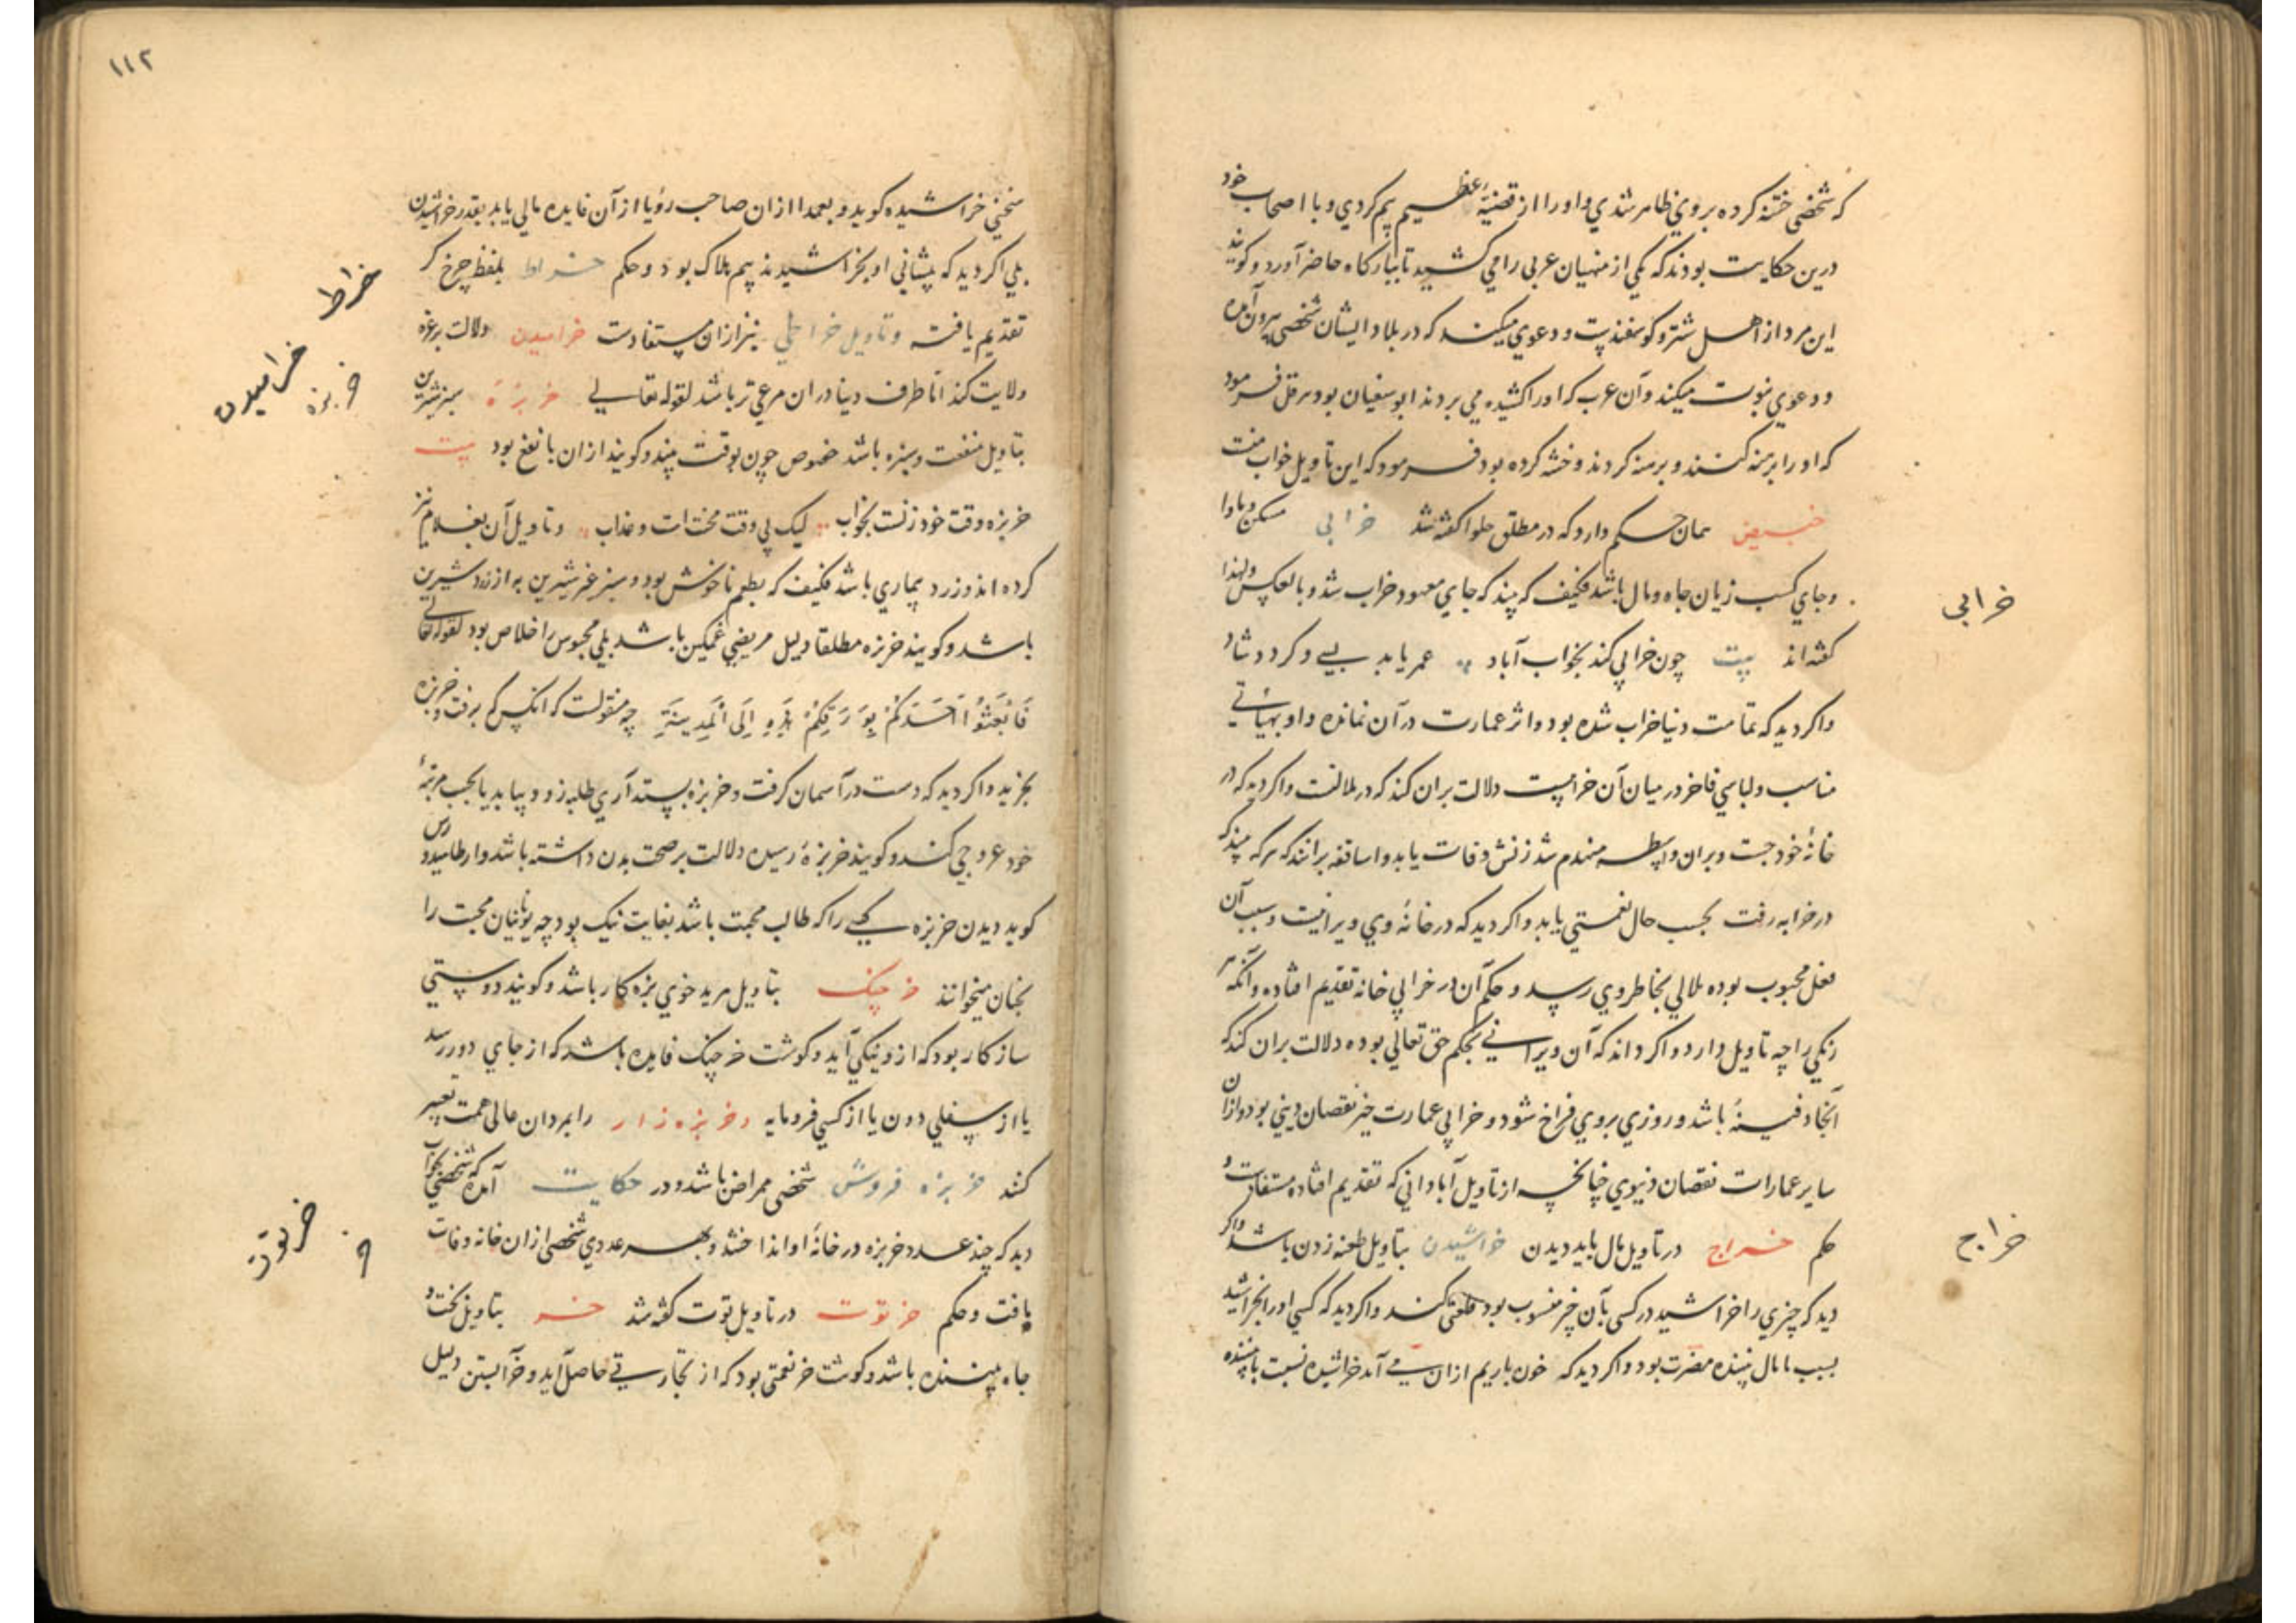 که شخصی ختنه کرده بروی ظاهر شدی و او را از قضیهٔ عظیم بیم کردی و با اصحاب خود
درین حکایت بودند که یکی از منهیان عربی را می کشید تا ببارکاه حاضر آورد و کویند
این مرد از اهل شتر و کوسفندست و دعوی میکند که در بلاد ایشان شخصی بیرون آمده
و دعوی نبوت میکند و آن عرب که او را کشیده می بردند ابو سفیان بود هرقل فرمود
که او را برهنه کنند و برهنه کردند و ختنه کرده بود فرمود که این تاویل خواب منست
خبیص همان حکم دارد که در مطلق حلوا کفته شد خرابی مسکن و ماوا
و جای کسب زیان جاه و مال باشد فکیف که بیند که جای معهود خراب شد و بالعکس ولهذا
کفته اند بیت چون خرابی کند بخواب آباد عمر یابد بسی و کردد شاد
و اکر دید که تمامت دنیا خراب شده بود و اثر عمارت در آن نمانده و او بهیأتی
مناسب و لباسی فاخر در میان آن خرابیست دلالت بران کند که در ملالتست و اکر دید که در
خانهٔ خود جست و بران واسطه منهدم شد زنش وفات یابد و اساقفه برانند که هرکه بیند که
در خرابه رفت بحسب حال نعمتی یابد و اکر دید که در خانهٔ وی ویرانیست و سبب آن
فعل محبوب بوده ملالی بخاطر وی رسد و حکم آن در خرابی خانه تقدیم افتاده و آنکه هر
رنکی را چه تاویل دارد و اکر داند که آن ویرانی بحکم حق تعالی بوده دلالت بران کند که
آنجا دفینهٔ باشد و روزی بروی فراخ شود و خرابی عمارت خیر نقصان دینی بود و ازان
سایر عمارات نقصان دنیوی چنانچه از تاویل آبادانی که تقدیم افتاده مستفادست و
حکم خراج در تاویل مال باید دیدن خراشیدن بتاویل طعنه زدن باشد و اکر
دید که چیزی را خراشید در کسی بآن چیز منسوب بود طعنی کند و اکر دید که کسی او را بخراشید
بسبب مال بیننده مضرت بود و اکر دید که خون یا ریم ازان می آمد خراشیده نسبت با بیننده
خرابی
خراج
۱۱۲
سخنی خراشیده کوید و بعدا ازان صاحب رؤیا از آن فایده مالی یابد بقدر خراشیدن
بلی اکر دید که پیشانی او بخراشیدند بیم هلاک بود و حکم خراط بلفظ چرخ کر
تقدیم یافت و تاویل خراطی نیز ازان مستفادست خرامیدن دلالت بر غره
ولایت کند اما طرف دینا دران مرعی تر باشد لقوله تعالی خربزه سبز شیرین
بتاویل منفعت و بزه باشد خصوص چون بوقت بیند و کویند ازان با نفع بود بیت
خربزه وقت خود زنست بخواب لیک بی وقت محنت است و عذاب و تاویل آن بغلام نیز
کرده اند و زرد بیماری باشد فکیف که بطعم ناخوش بود و سبز غیر شیرین به از زرد شیرین
باشد و کویند خربزه مطلقا دلیل مریضی غمکین باشد بلی محبوس را خلاص بود لقوله تعالی
فَابْعَثُوا أَحَدَكُمْ بِوَرِقِكُمْ هَذِهِ إِلَى الْمَدِينَةِ چه منقولست که آنکس که برفت و خربزه
بخرید و اکر دید که دست در آسمان کرفت و خربزه بستد آری طلبد زود بیابد یا بحسب مرتبهٔ
خود عروجی کند و کویند خربزهٔ رسیده دلالت بر صحت بدن داشته باشد و ارطامیدورس
کوید دیدن خربزه کسی را که طالب محبت باشد بغایت نیک بود چه یونانیان محبت را
بخبان میخوانند خرچنک بتاویل مرید خوی بزه کار باشد و کویند دوستی
سازکار بود که ازو نیکی آید و کوشت خرچنک فایده باشد که از جای دور رسد
یا از سفلی دون یا از کسی فرومایه و خربزه زار را بمردان عالی همت تعبیر
کنند خربزه فروش شخصی ممراض باشد و در حکایت آمده که شخصی بخواب
دید که چند عدد خربزه در خانهٔ او انداختند و بهر عددی شخصی ازان خانه وفات
یافت و حکم خرتوت در تاویل توت کفته شد خر بتاویل بخت و
جاه بیننده باشد و کوشت خر نعمتی بود که از تجارتی حاصل آید و خر آبستن دلیل
خراط
خرامیدن
خربزه
خرتوت